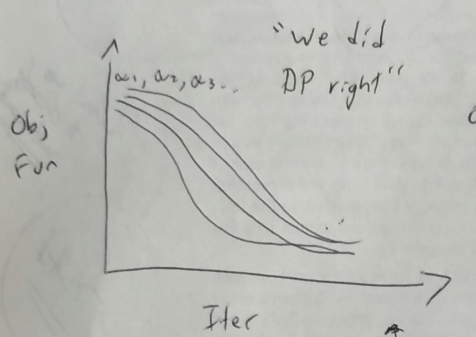 "We did
DP right"
α1, α2, α3..
Obj
Fun
Iter